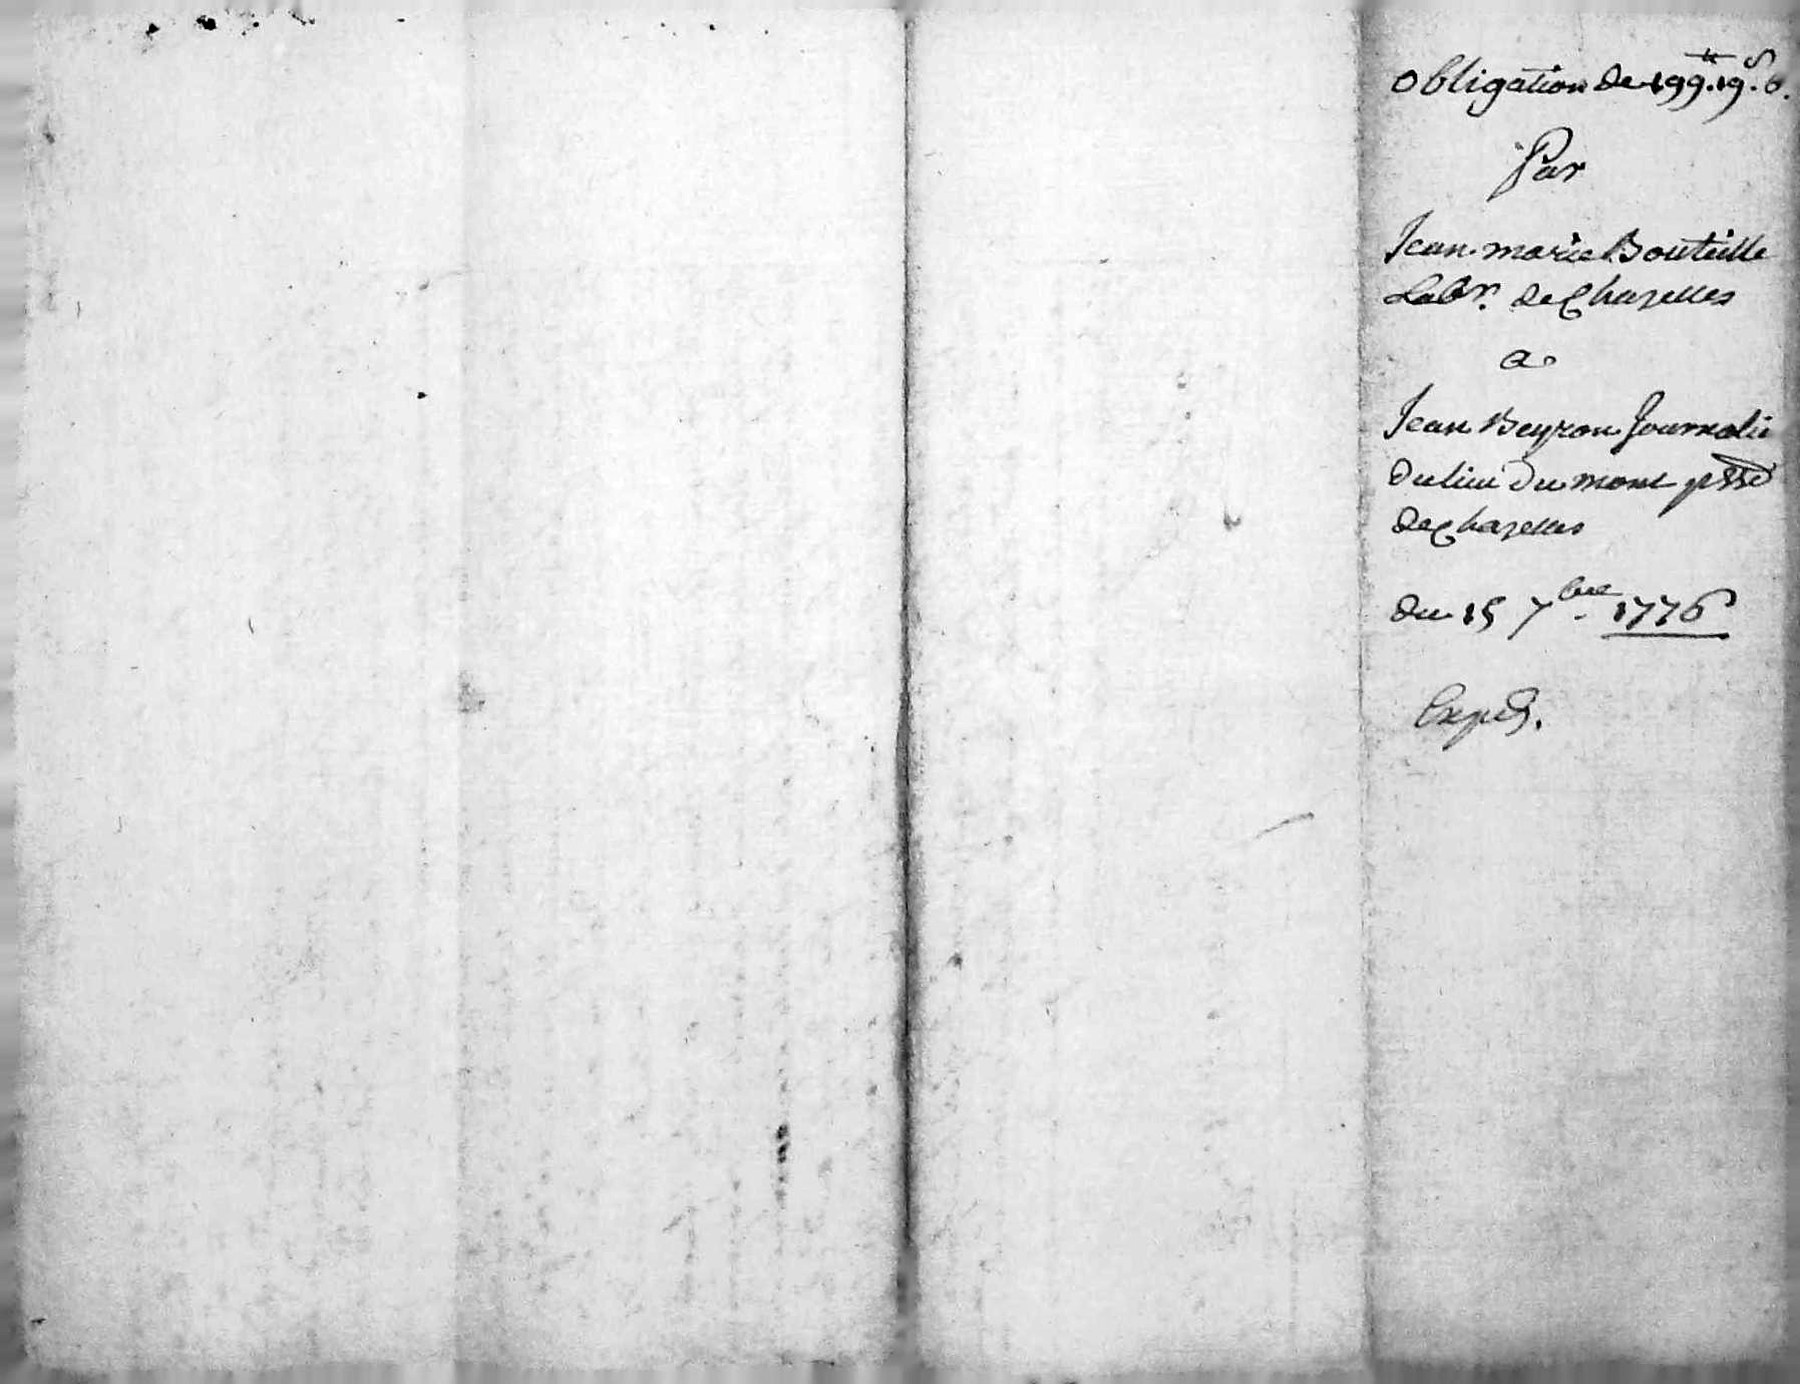 obligation de 199.tt 19.s 6.
Par
Jean marie Bouteille
Labr. de Chazelles
a
Jean Beyron Journalie
du lieu du mont psse
de Chazelles
du 15 7bre 1776
Expéd.